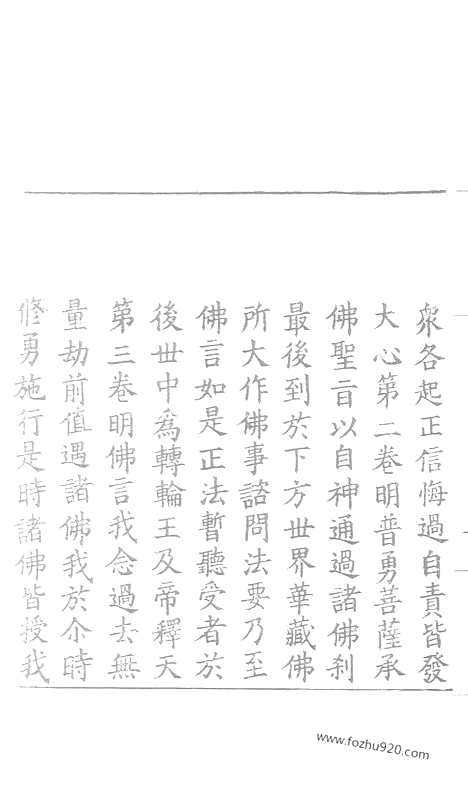 衆各起正信悔過自責皆發
大心第二卷明普勇菩薩承
佛聖旨以自神通過諸佛刹
最後到於下方世界華藏佛
所大作佛事諮問法要乃至
佛言如是正法暫聽受者於
後世中爲轉輪王及帝釋天
第三卷明佛言我念過去無
量劫前值遇諸佛我於尒時
修勇施行是時諸佛皆授我
www.fozhu920.com